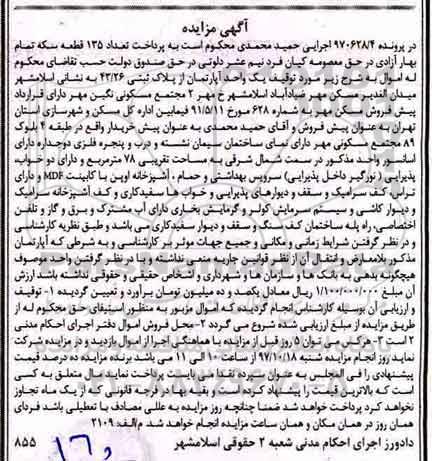 آگهی مزایده
در پرونده ۹۷۰۶۲۸/۴ اجرایی حمید محمدی محکوم است به پرداخت تعداد ۱۳۵ قطعه سکه تمام
بهار آزادی در حق معصومه کیان فرد نیم عشر دولتی در حق صندوق دولت حسب تقاضای محکوم
له اموال به شرح زیر مورد توقیف یک واحد آپارتمان از پلاک ثبتی ۴۳/۲۶ به نشانی اسلامشهر
میدان الغدیر مسکن مهر ضیاآباد اسلامشهر خ مهر ۲ مجتمع مسکونی نگین مهر دارای قرارداد
پیش فروش مسکن مهر با شماره ۶۲۸ مورخ ۹۱/۵/۱۱ فیمابین اداره کل مسکن و شهرسازی استان
تهران به عنوان پیش فروش و آقای حمید محمدی به عنوان پیش خریدار واقع در طبقه ۴ بلوک
۸۹ مجتمع مسکونی مهر دارای نمای ساختمان سیمان نشسته و درب و پنجره فلزی دوجداره دارای
آسانسور واحد مذکور در سمت شمال شرقی به مساحت تقریبی ۷۸ مترمربع و دارای دو خواب،
پذیرایی (نورگیر داخل پذیرایی) سرویس بهداشتی و حمام ، آشپزخانه اوپن با کابینت MDF و دارای
تراب، کف سرامیک و سقف و دیوارهای پذیرایی و خواب ها سفیدکاری و کف آشپزخانه سرامیک
و دیوار کاشی و سیستم سرمایش کولر و گرمایش بخاری دارای آب مشترک و برق و گاز و تلفن
اختصاصی، راه پله ساختمان کف سنگ و سقف و دیوار سفیدکاری می باشد و طبق نظریه کارشناسی
و در نظر گرفتن شرایط زمانی و مکانی و جمیع جهات موثر بر کارشناسی و به شرطی که آپارتمان
مذکور بلامعارض و انتقال آن از نظر قوانین جاریه منعی نداشته و با در نظر گرفتن واحد موصوف
هیچگونه بدهی به بانک ها و سازمان ها و شهرداری و اشخاص حقیقی و حقوقی نداشته باشد ارزش
آن مبلغ ۱/۱۰۰/۰۰۰/۰۰۰ ریال معادل یکصد و ده میلیون تومان برآورد و تعیین گردیده ۱- توقیف
و ارزیابی آن بوسیله کارشناس انجام گردیده که اموال مزبور به منظور استیفای حق محکوم له از
طریق مزایده از مبلغ ارزیابی شده شروع می گردد ۲- محل فروش اموال دفتر اجرای احکام مدنی
۲ است ۳- هرکس می توان ۵ روز قبل از مزایده با هماهنگی اجرا از اموال بازدید و در مزایده شرکت
نماید روز انجام مزایده شنبه ۹۷/۱۰/۱۸ از ساعت ۱۰ الی ۱۱ می باشد برنده مزایده ده درصد قیمت
پیشنهادی را فی المجلس به عنوان سپرده نقدا می بایست پرداخت نماید مال متعلق به کسی
است که بالاترین قیمت را پیشنهاد کرده است و بقیه بها در فرجه قانونی که از یک ماه تجاوز
نخواهد کرد پرداخت خواهد شد ضمنا چنانچه روز مزایده به عللی مصادف با تعطیلی باشد فردای
همان روز در همان مکان و همان ساعت مزایده انجام خواهد شد. م/الف: ۲۱۰۹
دادورز اجرای احکام مدنی شعبه ۲ حقوقی اسلامشهر ۸۵۵